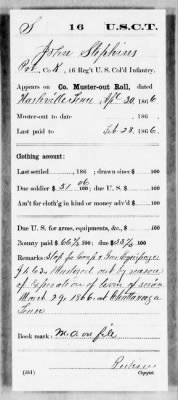 S 16 U.S.C.T.
John Stephens
Pvt, Co. K, 16 Reg't U. S. Col'd Infantry.
Appears on Co. Muster-out Roll, dated
Nashville Tenn Apl 30, 1866
Muster-out to date , 186 .
Last paid to Feb 28, 1866.
Clothing account:
Last settled , 186 ; drawn since $ 100
Due soldier $ 51 06/100; due U. S. $ 100
Am't for cloth'g in kind or money adv'd $ 100
Due U. S. for arms, equipments, &c., $ 100
Bounty paid $ 100; due $ 100
Remarks: Stop for Camp & Gar Equipage
Mustered out by reason
of Expiration of term of service
March 29, 1866. at Chattanooga
Tenn
Book mark: M. O. on file
(361) Copyist.